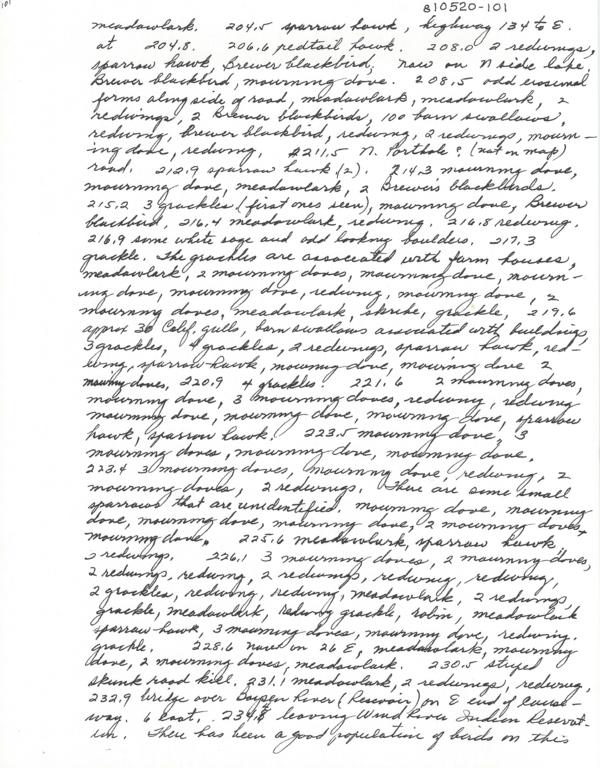 101
810520-101
meadowlark. 204.5 sparrow hawk, highway 134 to E.
at 204.8. 206.6 redtail hawk. 208.0 2 redwings,
sparrow hawk, Brewer blackbird, now on N side lake,
Brewer blackbird, mourning dove. 208.5 odd erosional
forms along side of road, meadowlark, meadowlark, 2
redwings, 2 Brewer blackbirds, 100 barn swallows,
redwing, brewer blackbird, redwing, 2 redwings, mourn-
ing dove, redwing. 211.5 N. Porthole? (not on map)
road. 212.9 sparrow hawk (2). 214.3 mourning dove,
mourning dove, meadowlark, 2 Brewer's blackbirds.
215.2 3 grackles (first ones seen), mourning dove, Brewer
blackbird, 216.4 meadowlark, redwing. 216.8 redwing.
216.9 some white sage and odd looking boulders. 217.3
grackle. The grackles are associated with farm houses,
meadowlark, 2 mourning doves, mourning dove, mourn-
ing dove, mourning dove, redwing, mourning dove, 2
mourning doves, meadowlark, shrike, grackle, 219.6
approx 30 Calif. gulls, barn swallows associated with buildings,
3 grackles, 4 grackles, 2 redwings, sparrow hawk, red-
wing, sparrow hawk, mourning dove, mourning dove 2
mourning doves, 220.9 4 grackles. 221.6 2 mourning doves,
mourning dove, 3 mourning doves, redwing, redwing
mourning dove, mourning dove, mourning dove, sparrow
hawk, sparrow hawk. 223.5 mourning dove, 3
mourning doves, mourning dove, mourning dove,
223.4 3 mourning doves, mourning dove, redwing, 2
mourning doves, 2 redwings. There are some small
sparrows that are unidentified. mourning dove, mourning
dove, mourning dove, mourning dove, 2 mourning doves,
mourning dove, 225.6 meadowlark, sparrow hawk,
2 redwings. 226.1 3 mourning doves, 2 mourning doves,
2 redwings, redwing, 2 redwings, redwing, redwing,
2 grackles, redwing, redwing, meadowlark, 2 redwings,
grackle, meadowlark, redwing grackle, robin, meadowlark
sparrow hawk, 3 mourning doves, mourning dove, redwing.
grackle. 228.6 now on 26 E, meadowlark, mourning
dove, 2 mourning doves, meadowlark. 230.5 striped
skunk road kill. 231.1 meadowlark, 2 redwings, redwing,
232.9 bridge over Boysen River (Resevoir) on E end of cause-
way. 6 coot. 234.8 leaving Wind River Indian Reservat-
ion. There has been a good population of birds on this